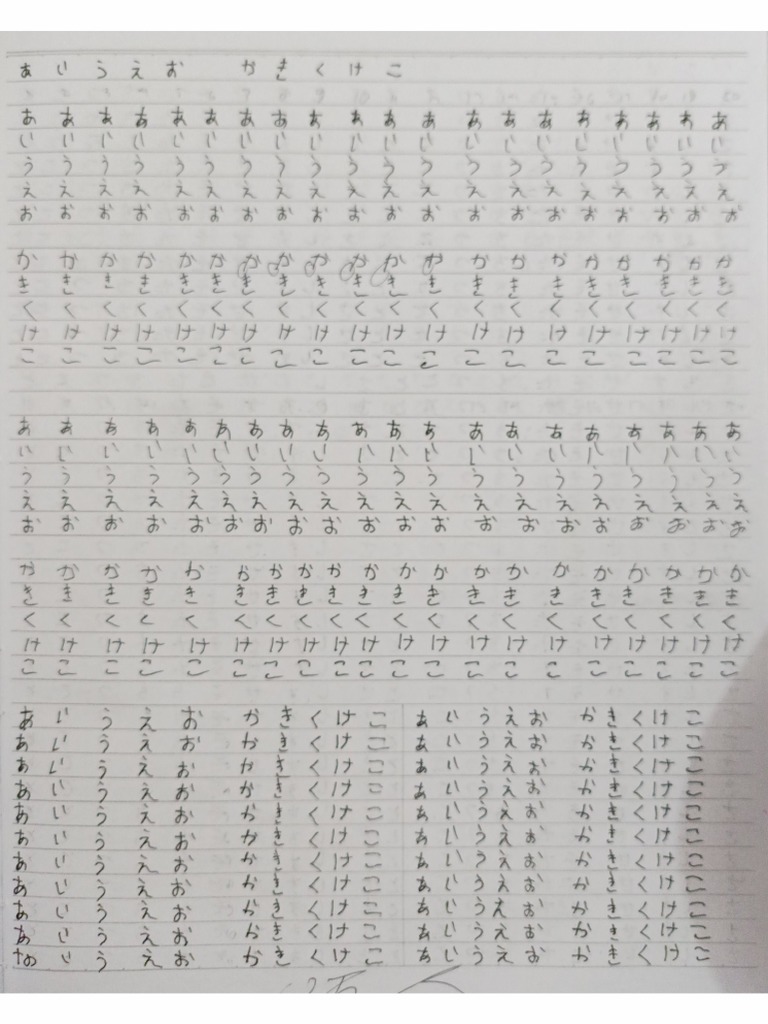 あ い う え お か き く け こ
あ あ あ あ あ あ あ あ あ あ あ あ あ あ あ あ あ あ あ あ
い い い い い い い い い い い い い い い い い い い い
う う う う う う う う う う う う う う う う う う う う
え え え え え え え え え え え え え え え え え え え え
お お お お お お お お お お お お お お お お お お お お
か か か か か か か か か か か か か か か か か か か か
き き き き き き き き き き き き き き き き き き き き
く く く く く く く く く く く く く く く く く く く く
け け け け け け け け け け け け け け け け け け け け
こ こ こ こ こ こ こ こ こ こ こ こ こ こ こ こ こ こ こ こ
あ あ あ あ あ あ あ あ あ あ あ あ あ あ あ あ あ あ あ あ
い い い い い い い い い い い い い い い い い い い い
う う う う う う う う う う う う う う う う う う う う
え え え え え え え え え え え え え え え え え え え え
お お お お お お お お お お お お お お お お お お お お
か か か か か か か か か か か か か か か か か か か か
き き き き き き き き き き き き き き き き き き き き
く く く く く く く く く く く く く く く く く く く く
け け け け け け け け け け け け け け け け け け け け
こ こ こ こ こ こ こ こ こ こ こ こ こ こ こ こ こ こ こ こ
あ い う え お か き く け こ あ い う え お か き く け こ
あ い う え お か き く け こ あ い う え お か き く け こ
あ い う え お か き く け こ あ い う え お か き く け こ
あ い う え お か き く け こ あ い う え お か き く け こ
あ い う え お か き く け こ あ い う え お か き く け こ
あ い う え お か き く け こ あ い う え お か き く け こ
あ い う え お か き く け こ あ い う え お か き く け こ
あ い う え お か き く け こ あ い う え お か き く け こ
あ い う え お か き く け こ あ い う え お か き く け こ
あ い う え お か き く け こ あ い う え お か き く け こ
あ い う え お か き く け こ あ い う え お か き く け こ